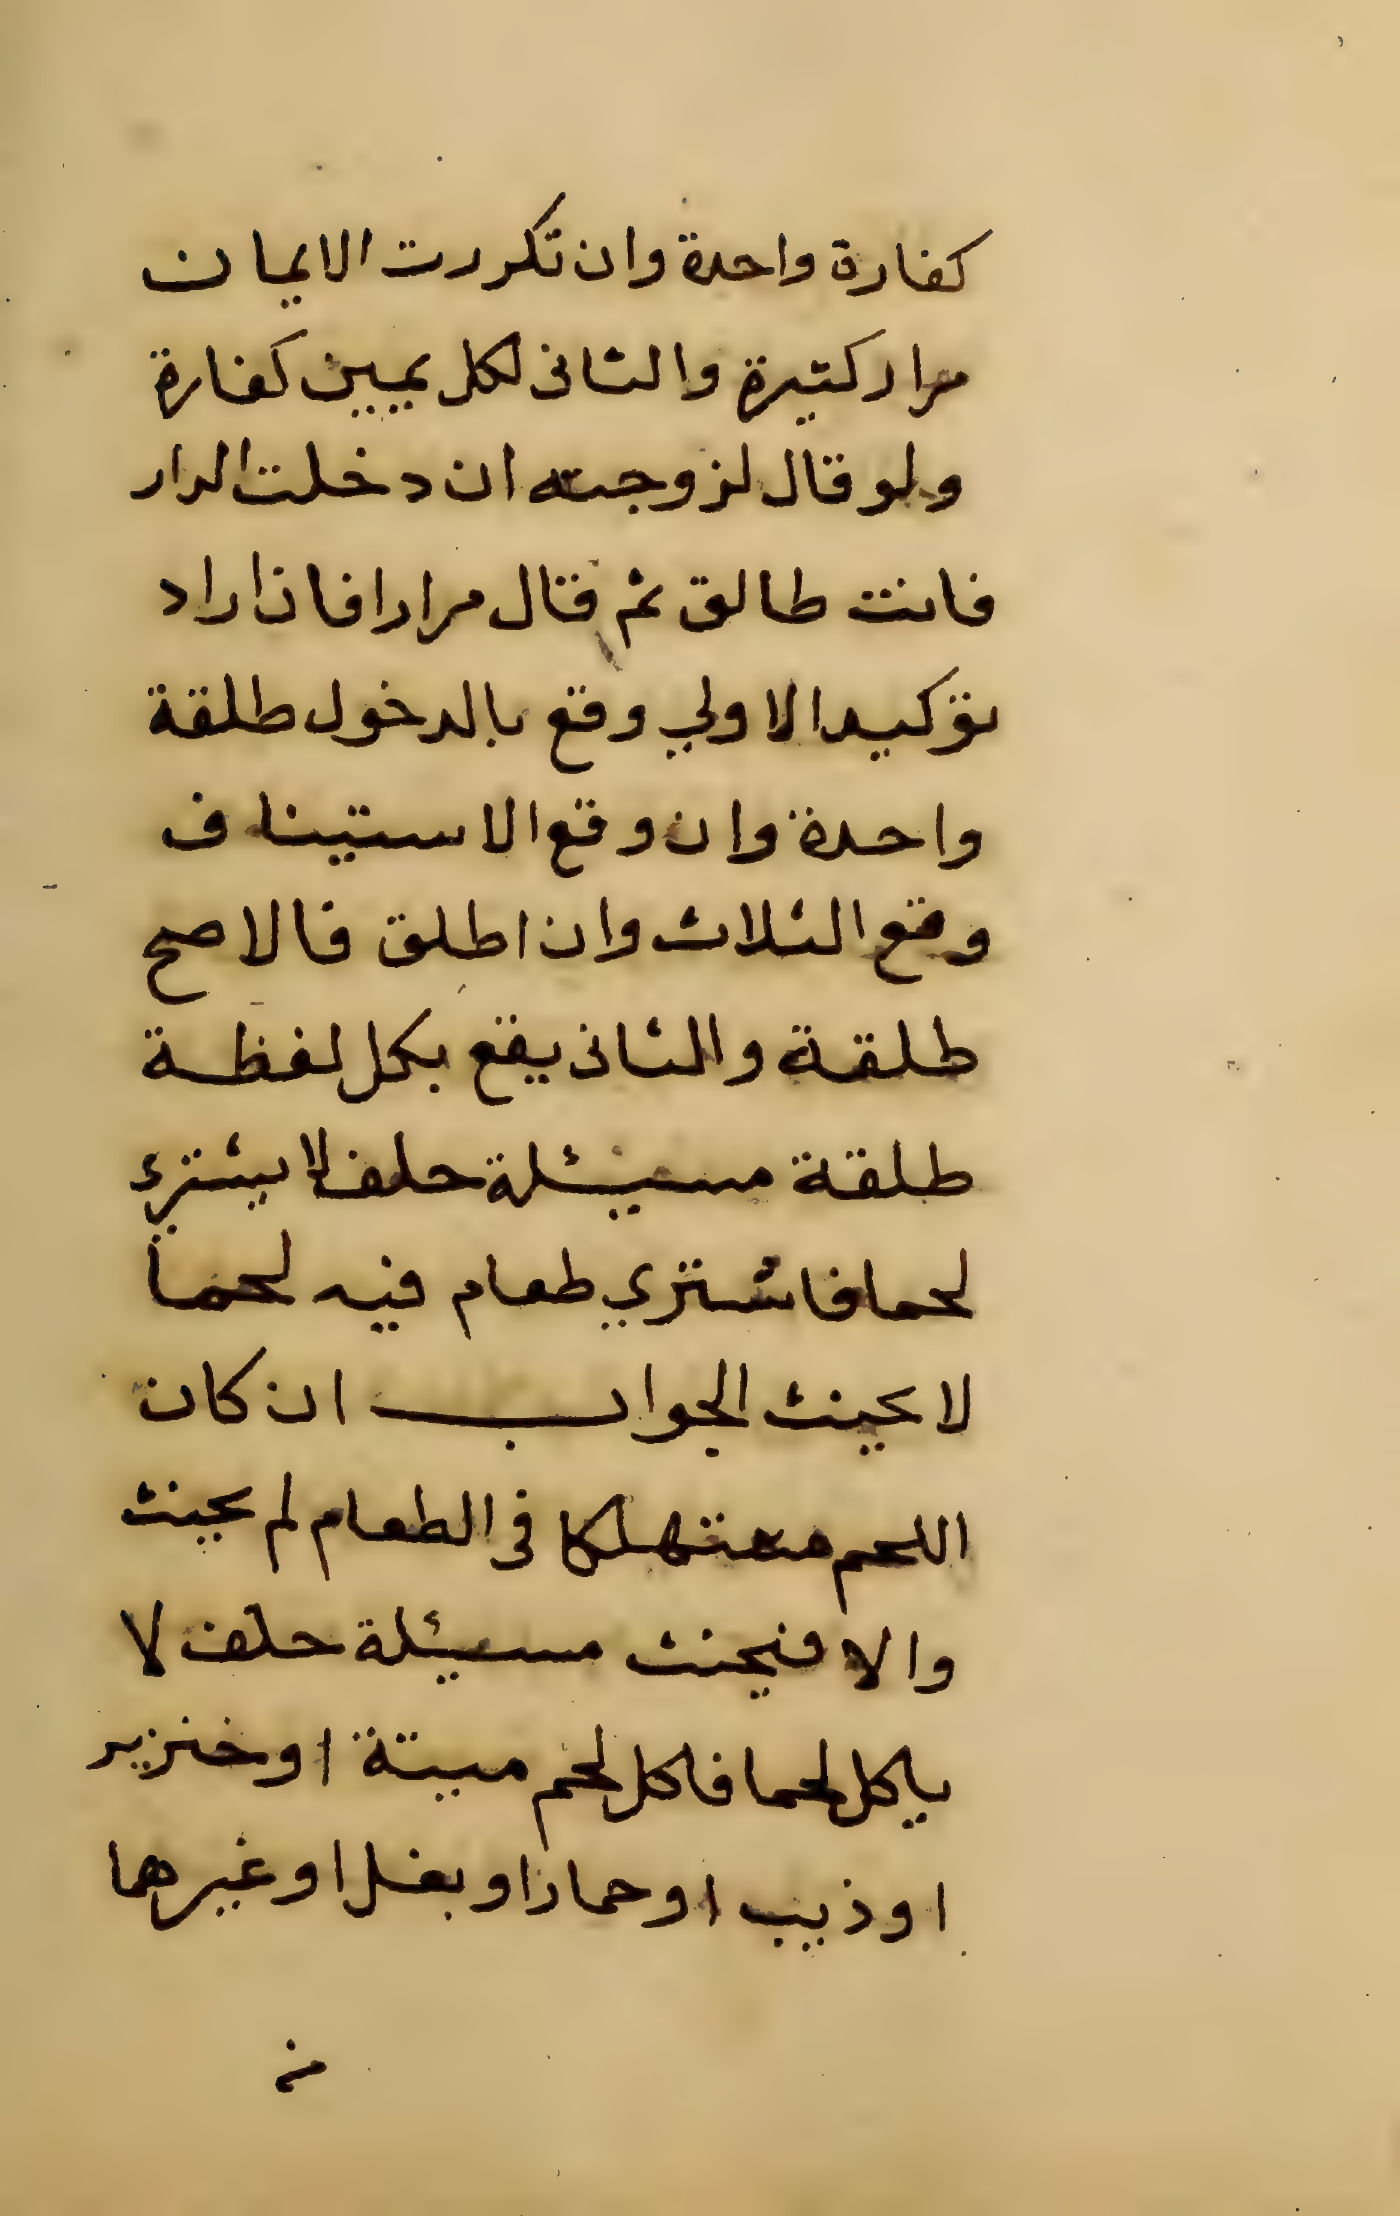 كفارة واحدة وان تكررت الايمان
مرار كثيرة والثانى لكل يميين كفارة
ولو قال لزوجته ان دخلت الدار
فانت طالق ثم قال مرارا فاذا راد
توكيد الاولي وقع بالدخول طلقة
واحدة وان وقع الاستيناف
وقع الثلاث وان اطلق فالاصح
طلقة والثانى يقع بكل لفظة
طلقة مسيئلة حلف لا يشتري
لحما فاشتري طعام فيه لحما
لا يحينث الجواب ان كان
اللحم مستهلكا فى الطعام لم يحينث
والا فيحنث مسيئلة حلف لا
ياكل لحما فاكل لحم ميتة او خنزير
او ذيب او حمار او بغل او غيرها
من